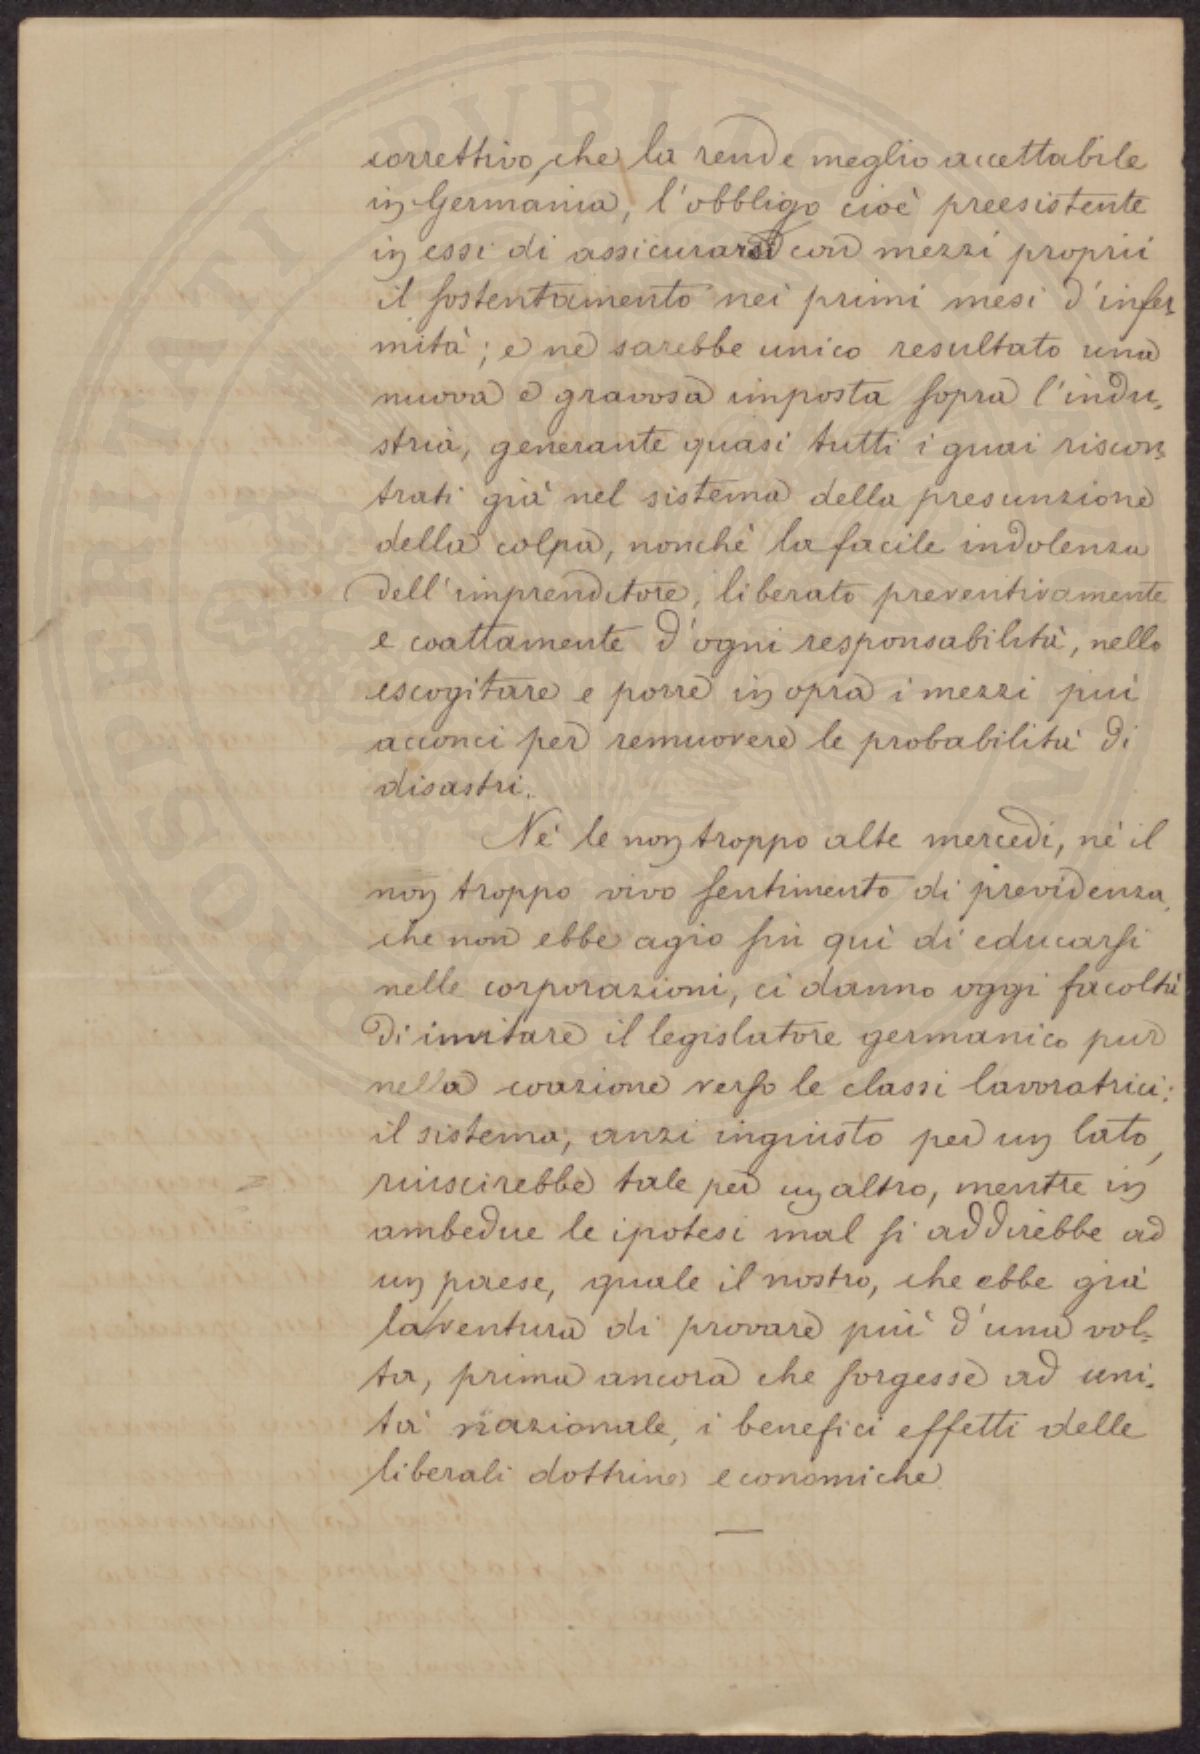 correttivo, che la rende meglio accettabile
in Germania, l'obbligo cioè preesistente
in essi di assicurarsi con mezzi proprii
il sostentamento nei primi mesi d'infer-
mità; e ne sarebbe unico resultato una
nuova e gravosa imposta sopra l'indu-
stria, generante quasi tutti i guai riscon-
trati già nel sistema della presunzione
della colpa, nonchè la facile indolenza
dell'imprenditore, liberato preventivamente
e coattamente d'ogni responsabilità, nello
escogitare e porre in opra i mezzi più
acconci per remuovere le probabilità di
disastri.
Nè le non troppo alte mercedi, nè il
non troppo vivo sentimento di previdenza,
che non ebbe agio fin quì di educarsi
nelle corporazioni, ci danno oggi facoltà
di imitare il legislatore germanico pur
nella coazione verso le classi lavoratrici:
il sistema, anzi ingiusto per un lato,
riuscirebbe tale per un altro, mentre in
ambedue le ipotesi mal si addirebbe ad
un paese, quale il nostro, che ebbe già
la ventura di provare più d'una vol-
ta, prima ancora che sorgesse ad uni-
tà nazionale, i benefici effetti delle
liberali dottrine economiche
PROSPERITATI PVBLICAE